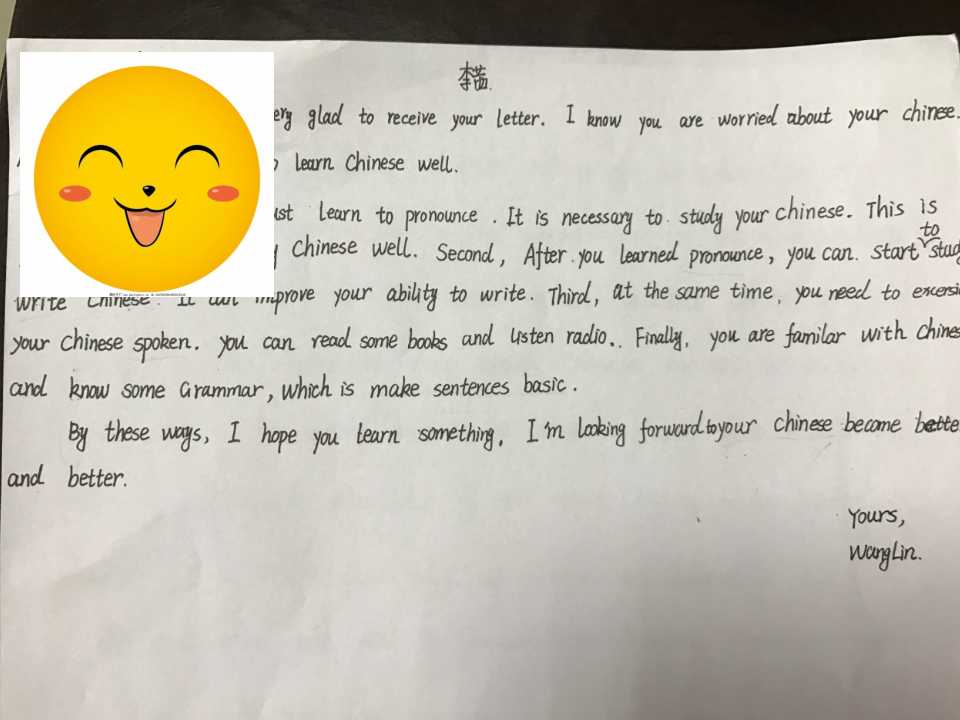 李茜.
glad to receive your letter. I know you are worried about your chinee.
learn Chinese well.
learn to pronounce. It is necessary to study your chinese. This is
to
Chinese well. Second, After you learned pronounce, you can start
write Chinese. It improve your ability to write. Third, at the same time, you need to
your Chinese spoken. you can read some books and listen radio.. Finally, you are familar with
and know some Grammar, which is make sentences basic.
By these ways, I hope you learn something, I'm looking forward to your chinese become
and better.
Yours,
Wang Lin.